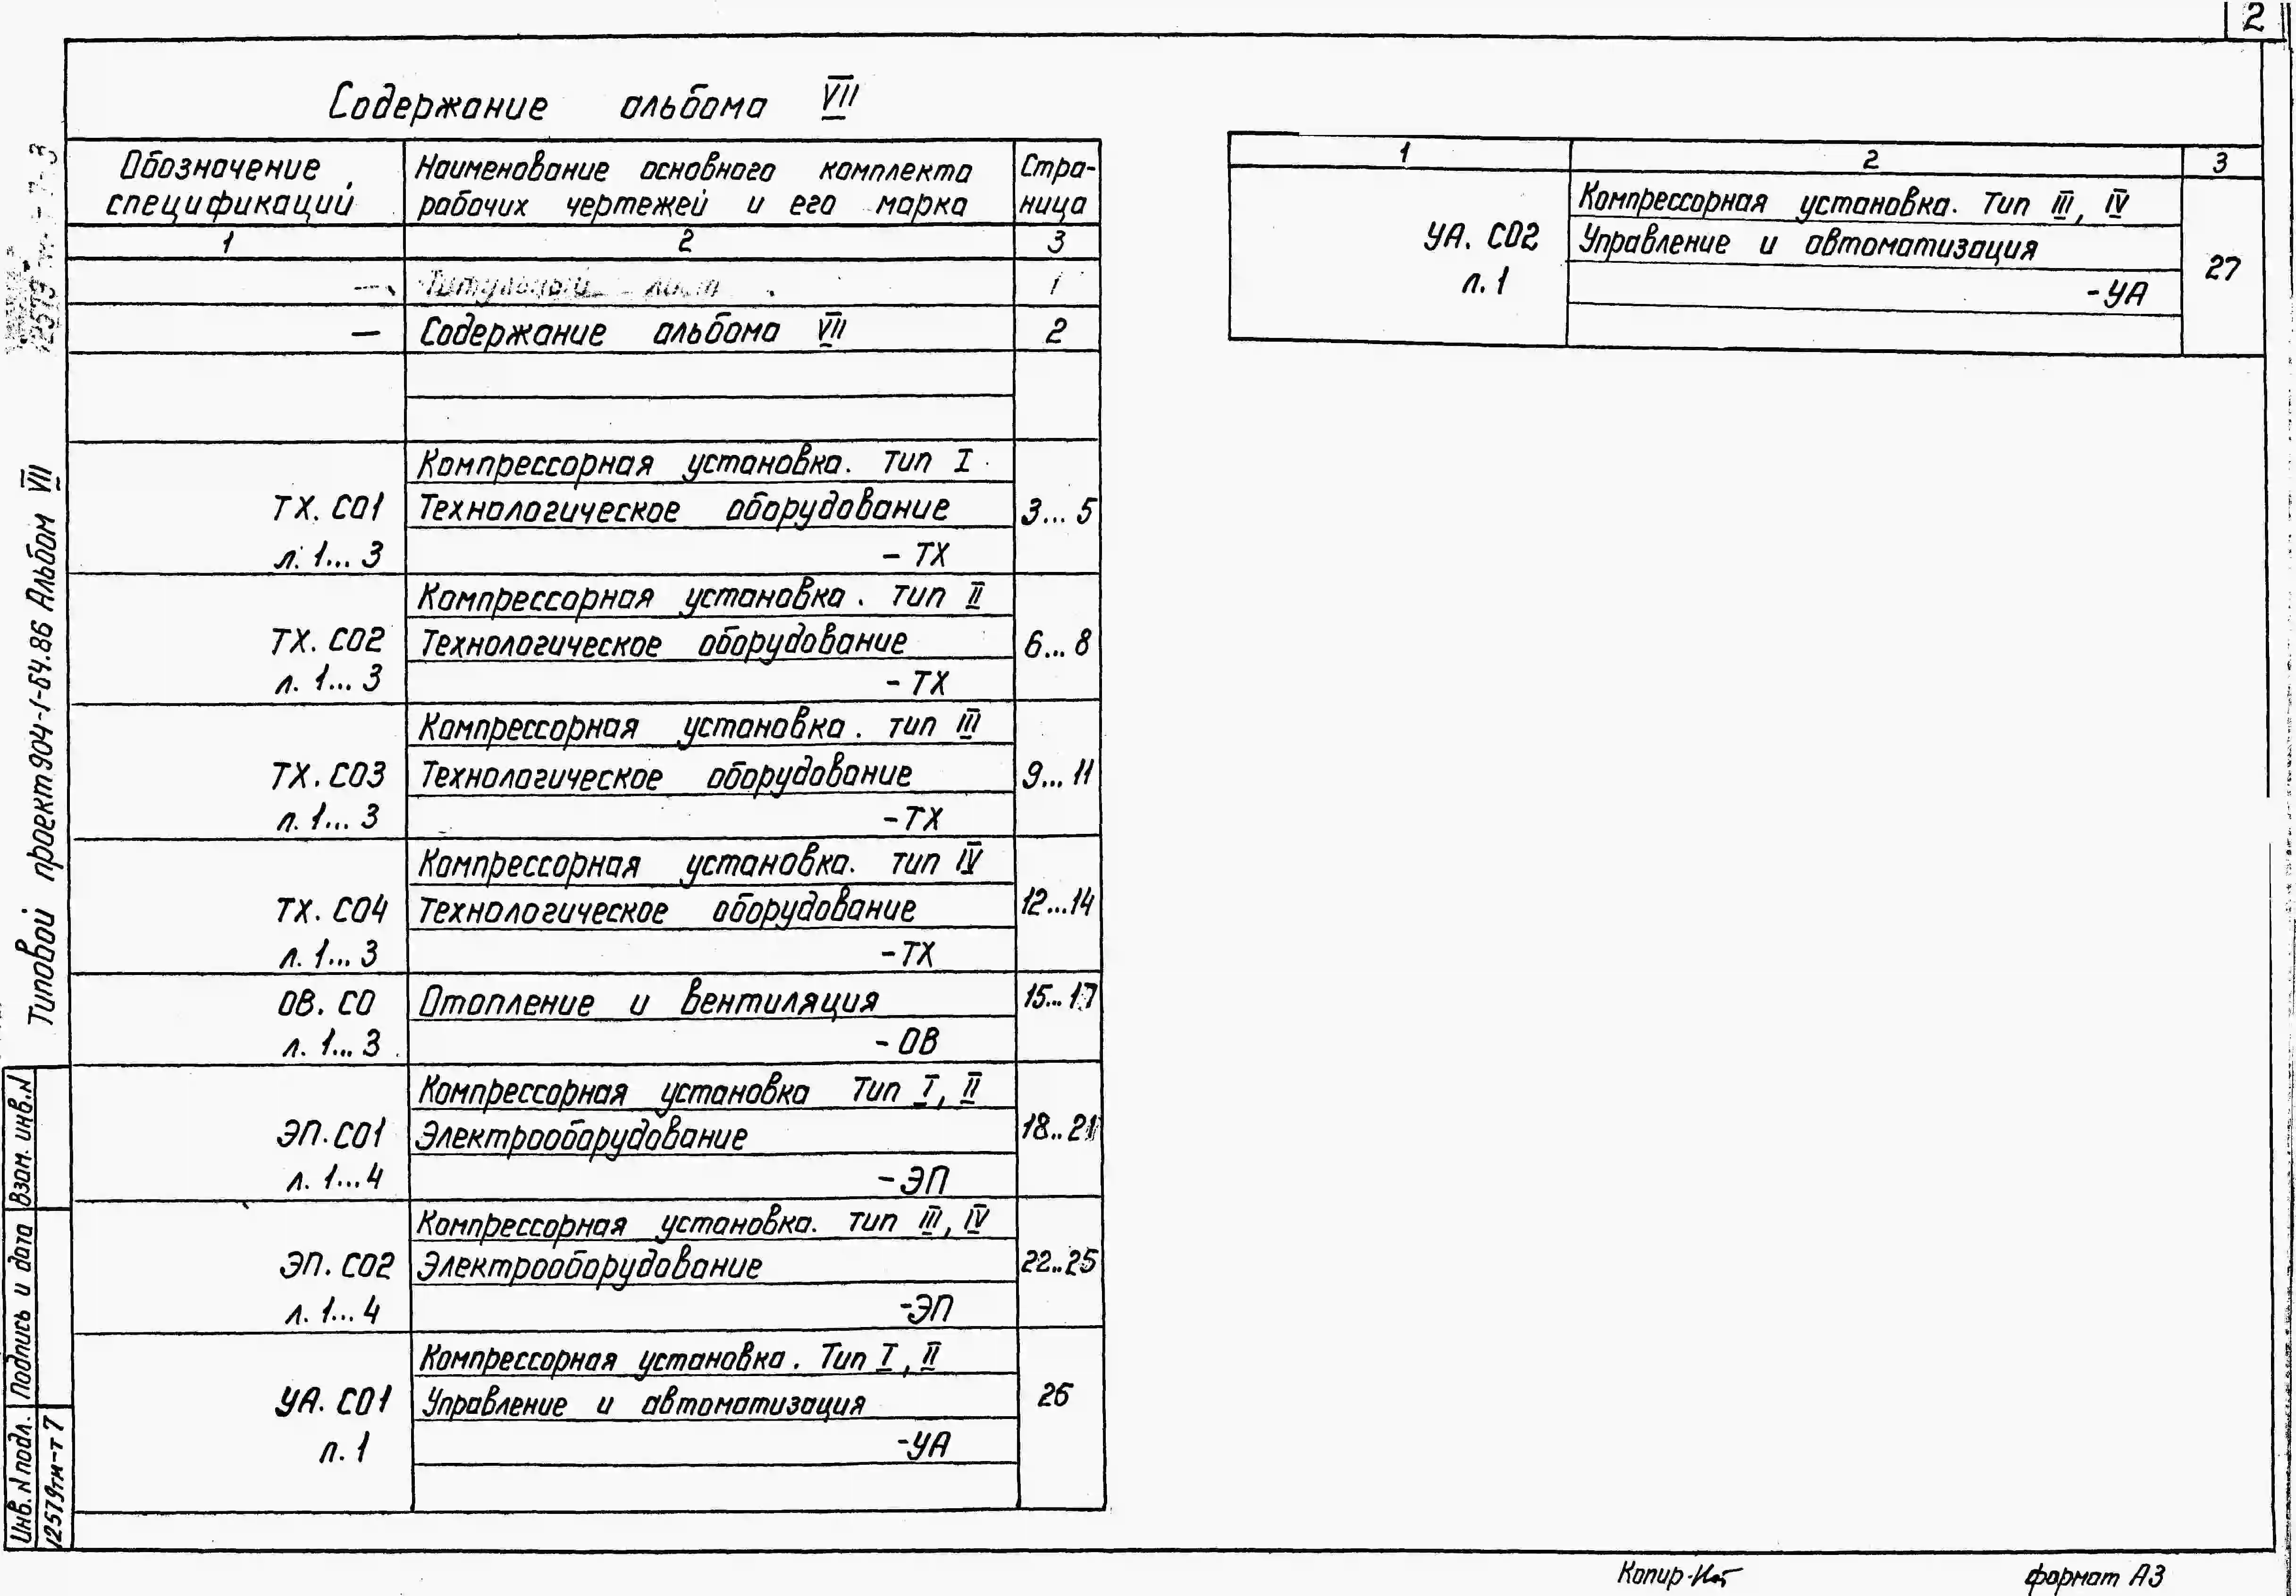 2
Содержание альбома VII
Обозначение спецификаций
Наименование основного комплекта рабочих чертежей и его марка
Стра-ница
1 2 3
— Титульный лист 1
— Содержание альбома VII 2
Компрессорная установка. Тип I
ТХ. СО1 Технологическое оборудование 3...5
л. 1...3 - ТХ
Компрессорная установка. тип II
ТХ. СО2 Технологическое оборудование 6...8
л. 1...3 - ТХ
Компрессорная установка. тип III
ТХ. СО3 Технологическое оборудование 9...11
л. 1...3 -ТХ
Компрессорная установка. тип IV
ТХ. СО4 Технологическое оборудование 12...14
л. 1...3 -ТХ
ОВ. СО Отопление и вентиляция 15...17
л. 1...3 - ОВ
Компрессорная установка Тип I, II
ЭП. СО1 Электрооборудование 18..21
л. 1...4 -ЭП
Компрессорная установка. тип III, IV
ЭП. СО2 Электрооборудование 22..25
л. 1...4 -ЭП
Компрессорная установка. Тип I, II
УА. СО1 Управление и автоматизация 26
л. 1 -УА
1 2 3
Компрессорная установка. Тип III, IV
УА. СО2 Управление и автоматизация 27
л. 1 -УА
Типовой проект 904-1-64.86 Альбом VII
Взам. инв. N
Подпись и дата
Инв. N подл.
12579тм-т 7
Копир.
формат А3